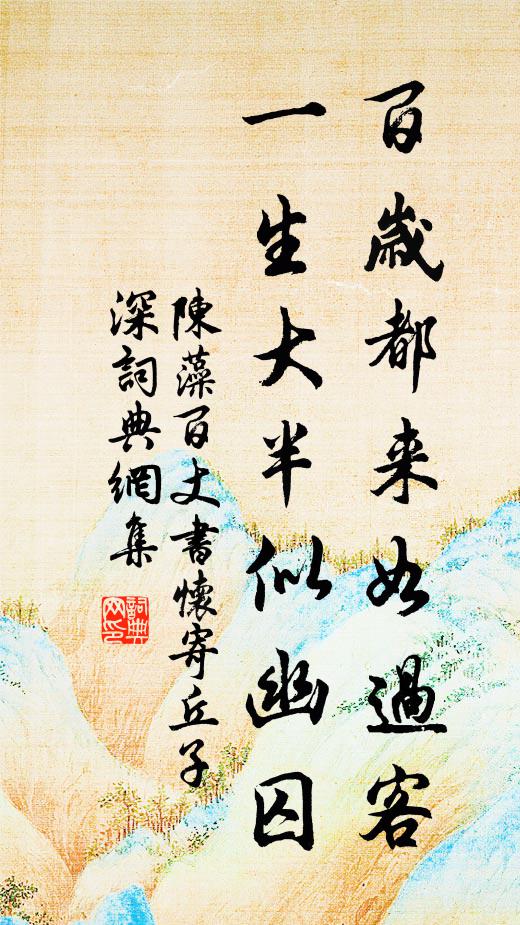 百歲都来如過客
一生大半似幽囚
陳藻百丈書懷寄丘子
深詞典網集
詞典
网印